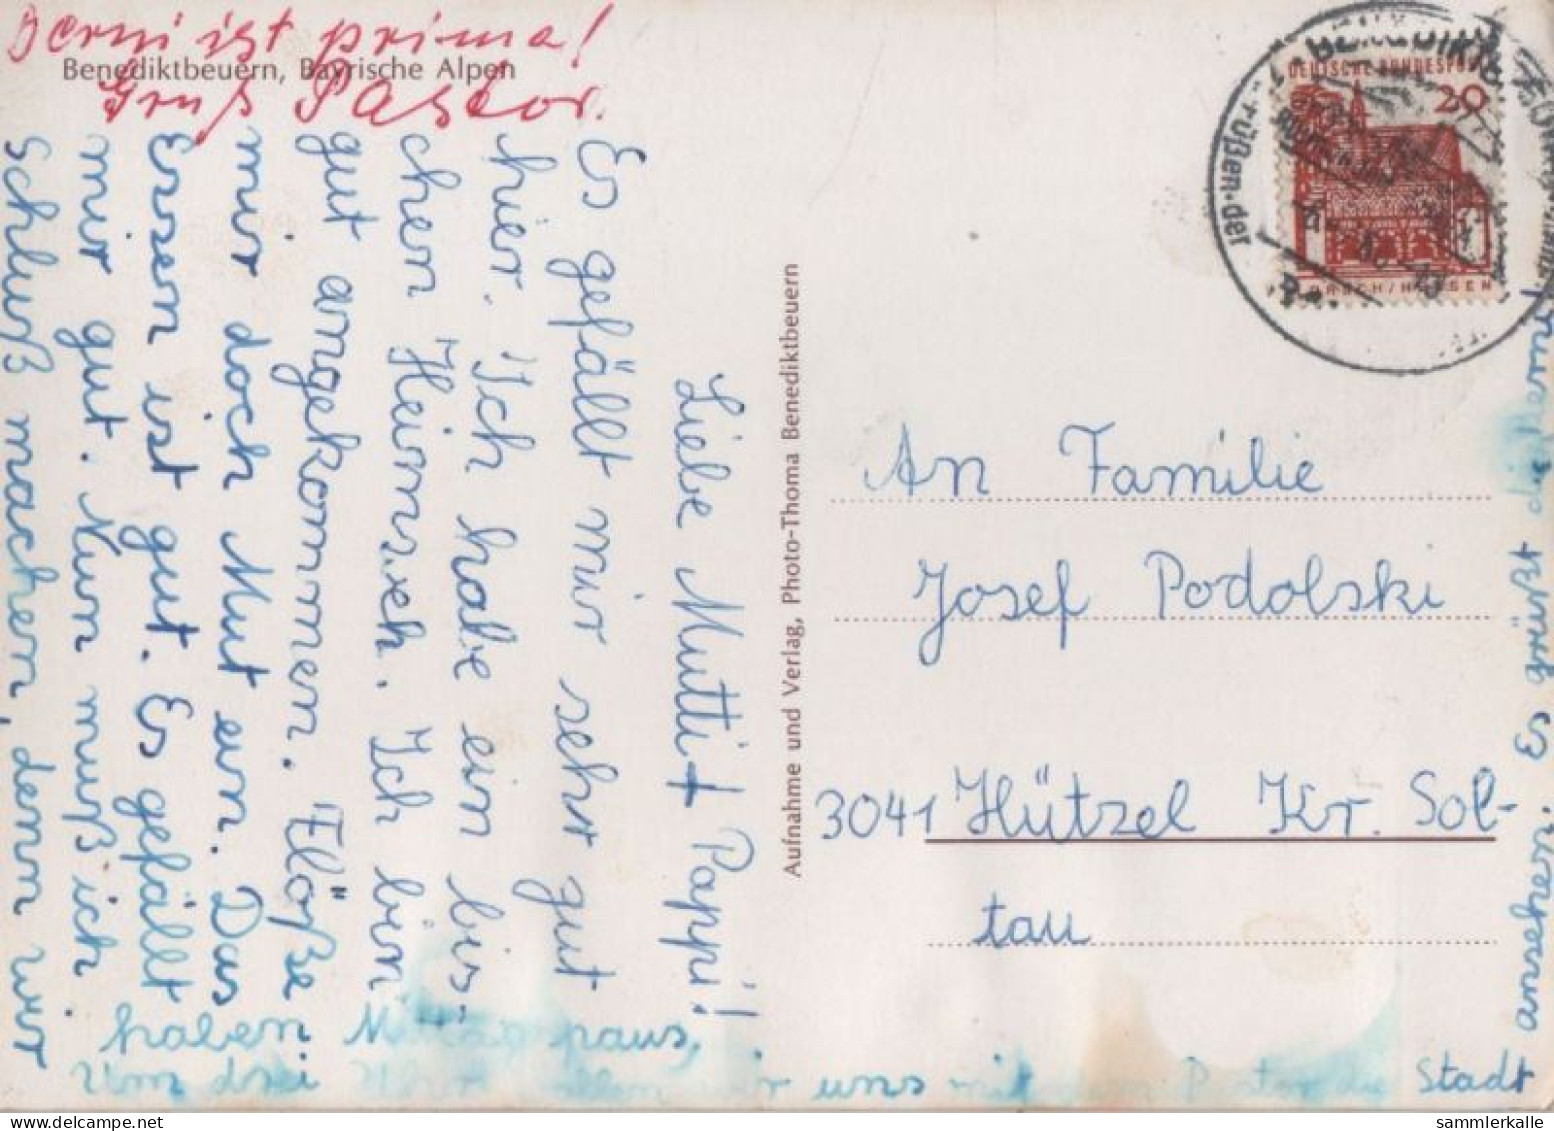 Jerni ist prima!
Gruß Pastor.
Benediktbeuern, Bayrische Alpen
Liebe Mutti + Pappi!
Es gefällt mir sehr gut
hier. Ich habe ein bis-
chen Heimweh. Ich bin
gut angekommen. Flöße
mir doch Mut ein. Das
Essen ist gut. Es gefällt
mir gut. Nun muß ich
Schluß machen, denn wir
haben Mittagspaus,
Um drei Uhr wollen wir uns mit Pastor die Stadt
ansehen. Es grüßt
Aufnahme und Verlag, Photo-Thoma Benediktbeuern
DEUTSCHE BUNDESPOST
20
LORSCH/HESSEN
An Familie
Josef Podolski
3041 Hützel Kr. Sol-
tau
sammlerkalle